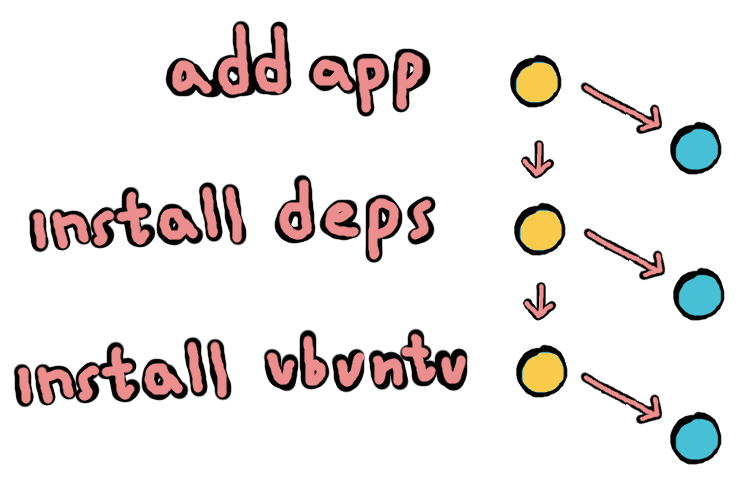 add app
install deps
install ubuntu